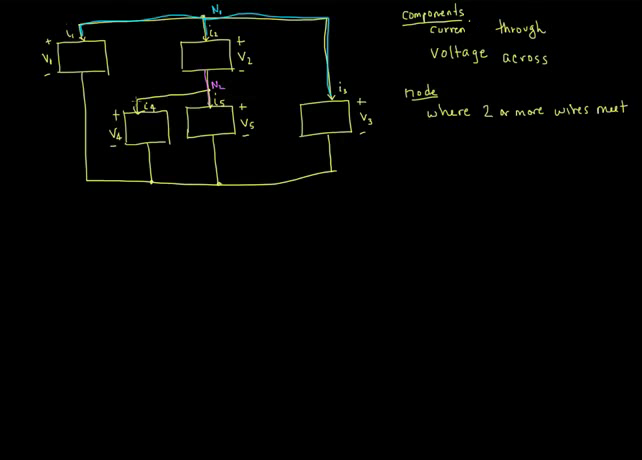 N₁
i₁
i₂
+
V₁
-
+
V₂
-
N₂
i₃
+
V₃
-
i₄
+
V₄
-
i₅
+
V₅
-
Components
Curren through
Voltage across
node
where 2 or more wires meet